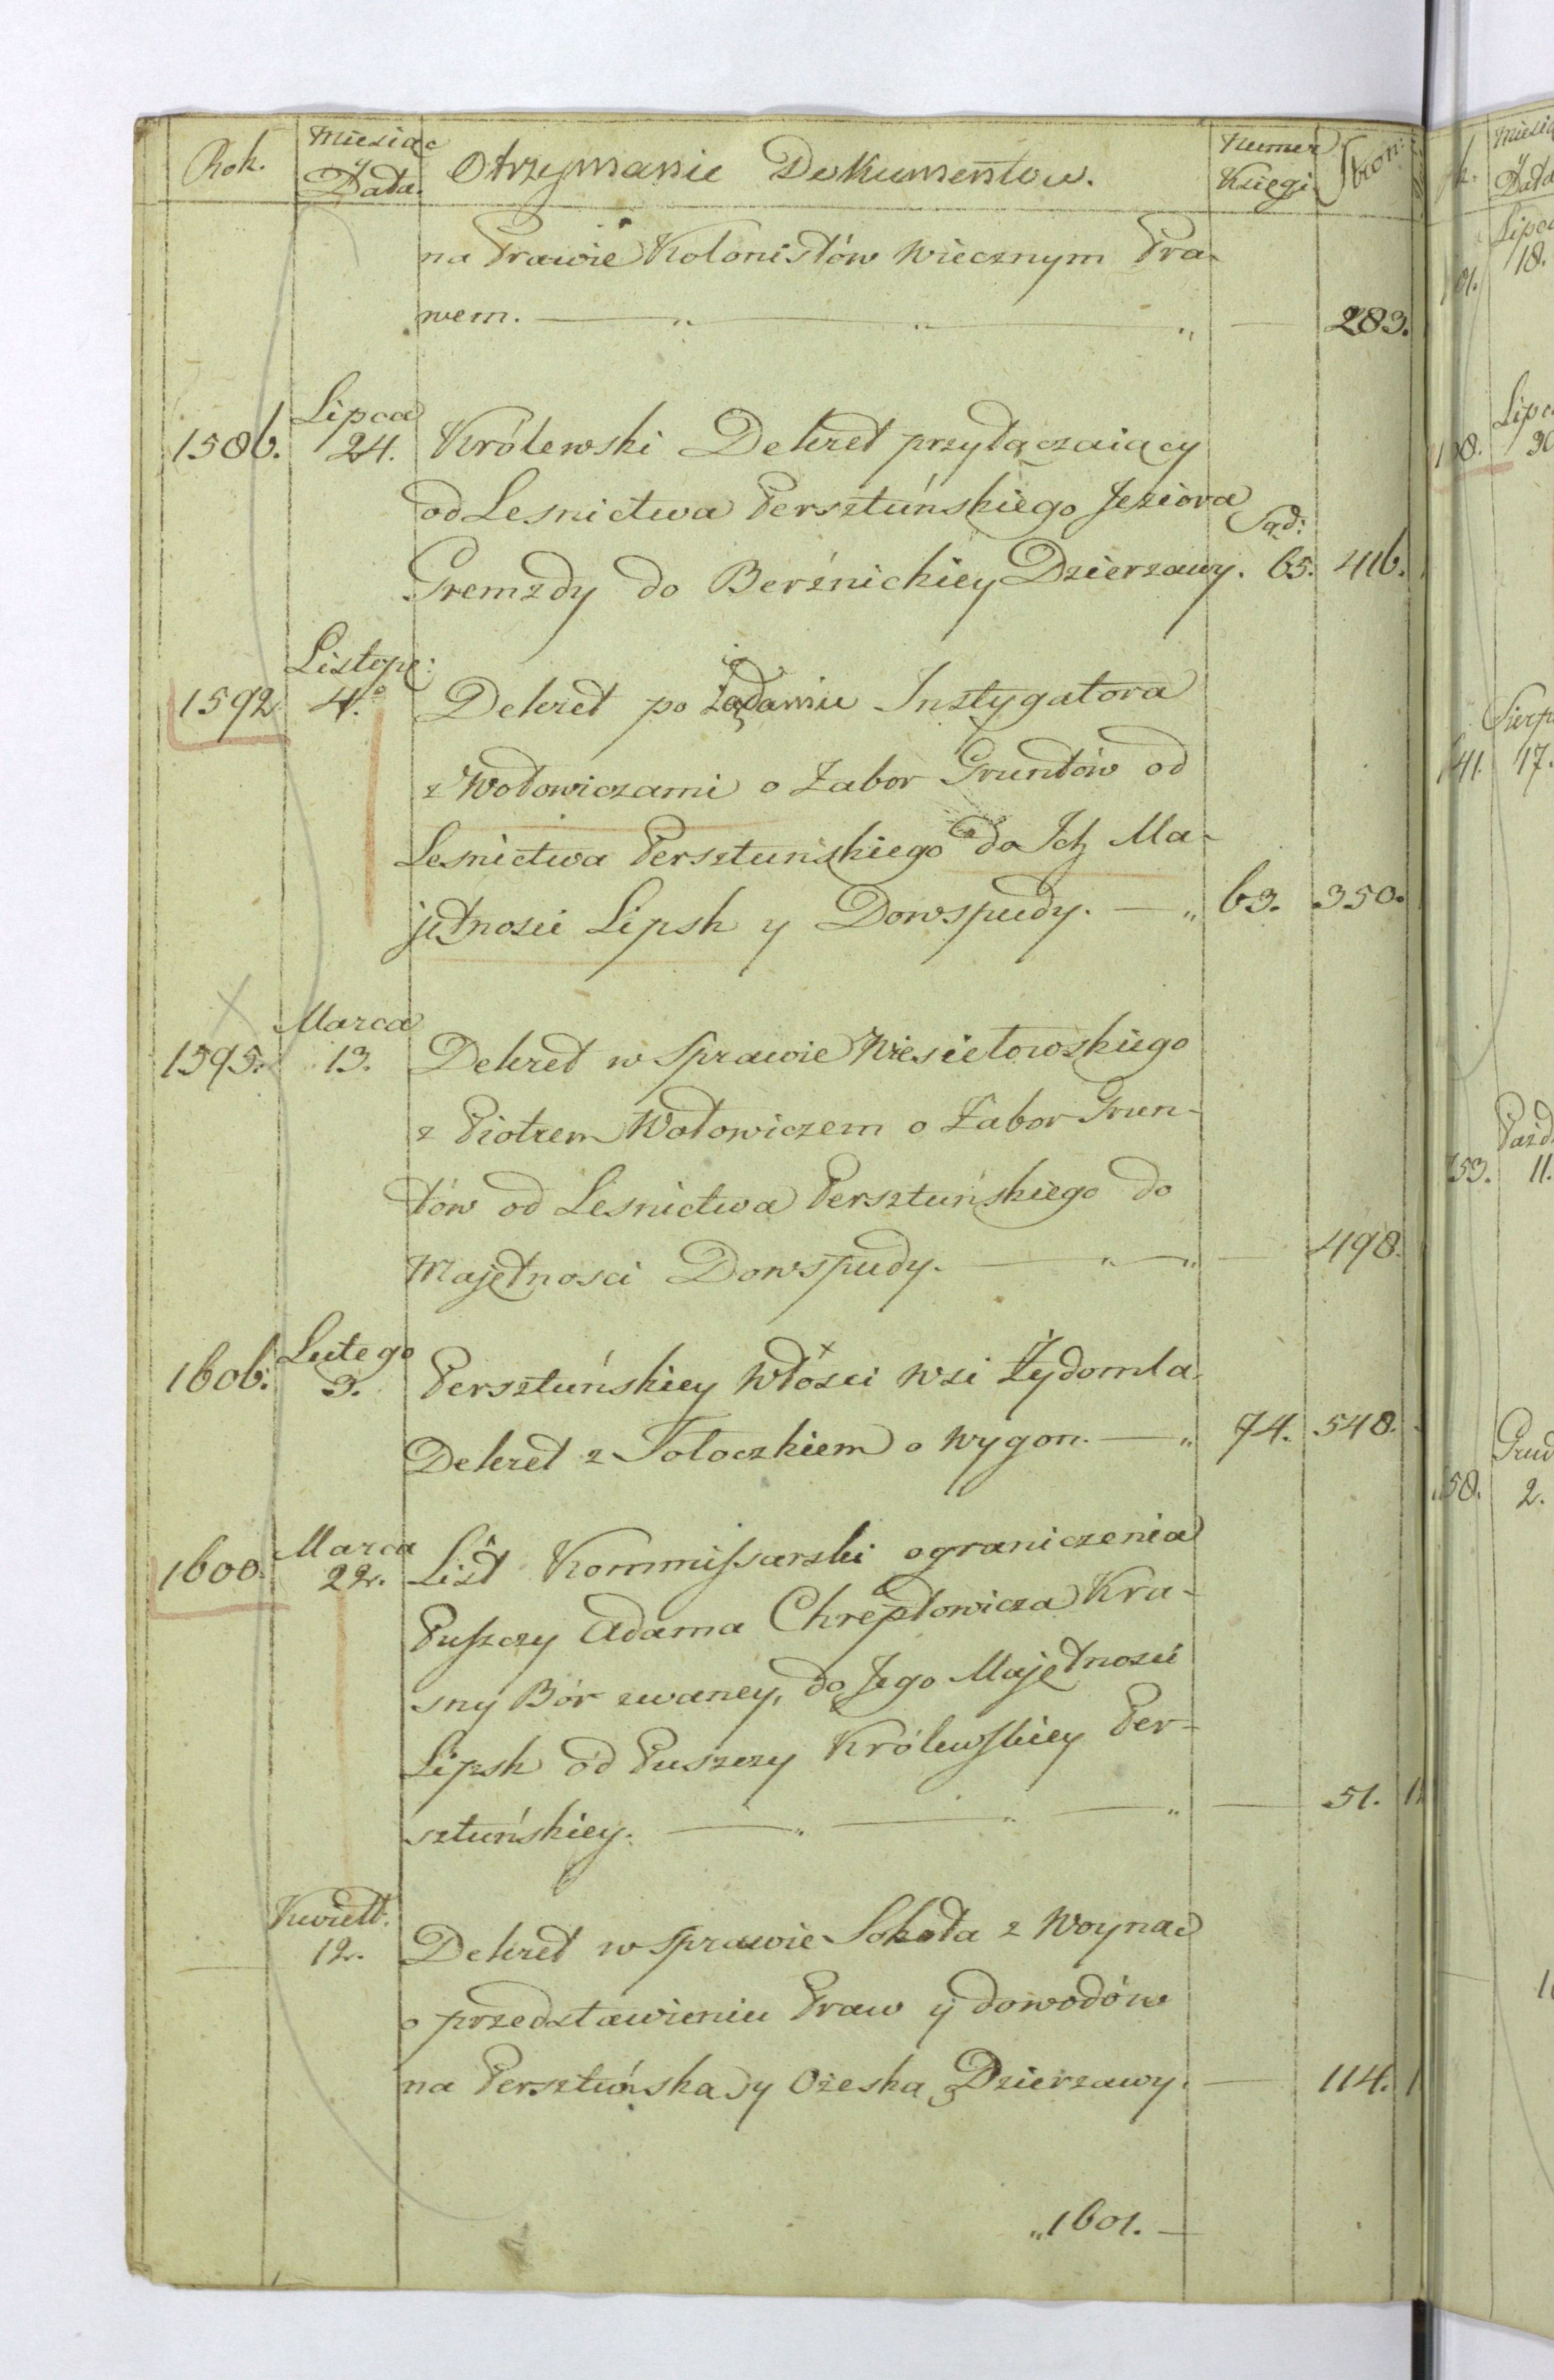 Rok. Miesiąc y Data. Otrzymanie Dokumentow. Numer Księgi Stron:
na Prawie Kolonistów Wiecznym Pra-
wem. — „ — „ — „ — 283.
Lipca
1586. 24. Królewski Dekret przyłączaiący
od Lesnictwa Persztuńskiego Jeziora Sąd:
Gremzdy do Berźnickiey Dzierzawy. 65. 416.
Listop:
1592 4. Dekret po Żądaniu Instygatora
z Wołowiczami o Zabor Gruntów od
Lesnictwa Persztunskiego do Ich Ma-
jętnosci Lipsk y Dowspudy. — „ 63. 350.
Marca
1595. 13. Dekret w Sprawie Wiesiełowskiego
z Piotrem Wołowiczem o Zabor Grun-
tów od Lesnictwa Persztuńskiego do
Majętnosci Dowspudy. — „ — „ — 498.
Lutego
1606. 3. Persztuńskiey Włości Wsi Żydomla
Dekret z Tołoczkiem o Wygon. — „ 74. 548.
Marca
1600. 22. List Kommissarski ograniczenia
Puszczy Adama Chreptowicza Kra-
sny Bór zwaney, do Jego Majętnosci
Lipsk od Puszczy Królewskiey Per-
sztuńskiey. — „ — „ — „ — 51.
Kwiet:
— 12. Dekret w Sprawie Sokoła z Woyna
o przedstawieniu Praw y dowodów
na Persztuńska y Ożeska Dzierzawy. — 114.
„1601. —